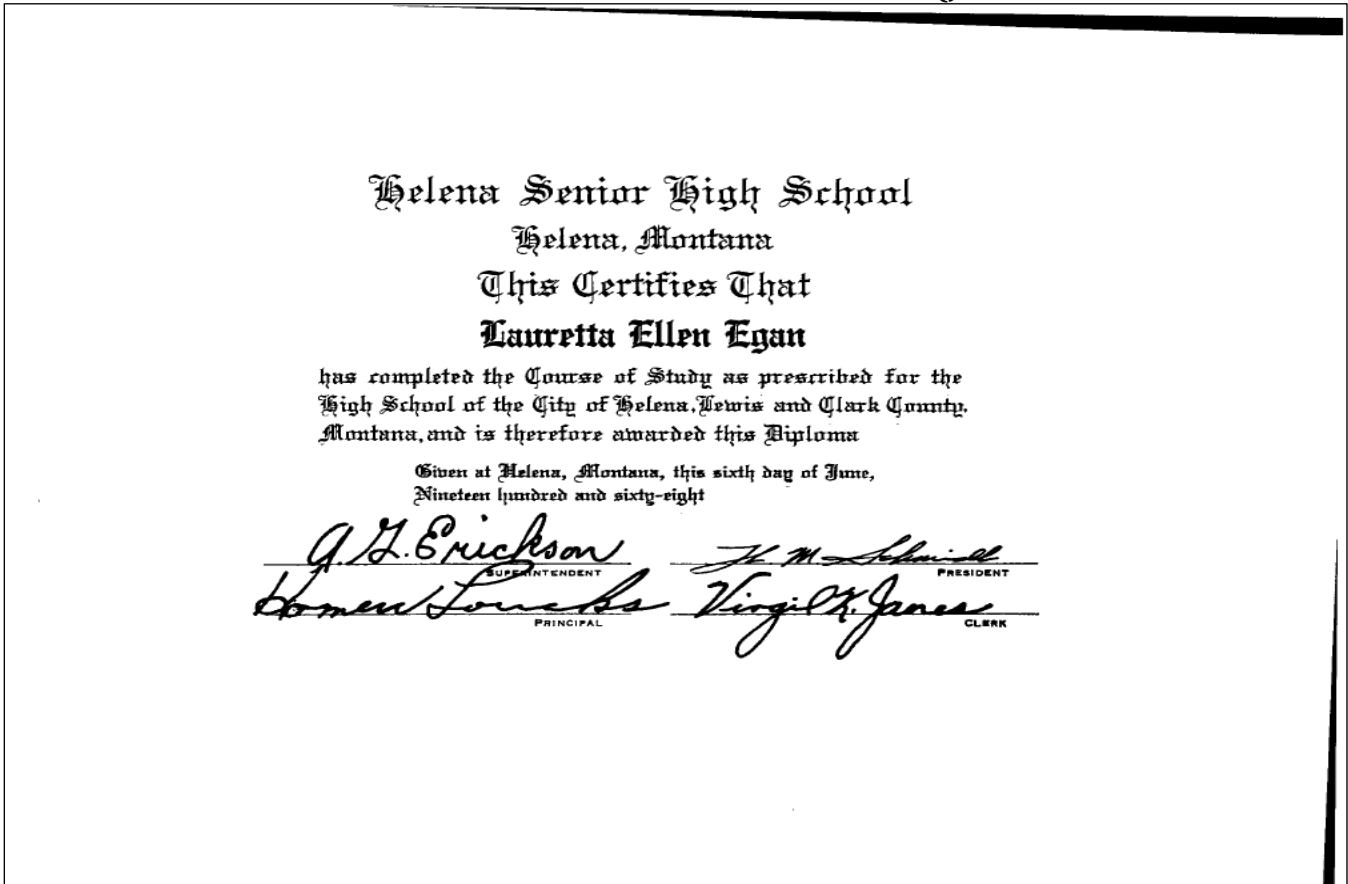 Helena Senior High School
Helena, Montana
This Certifies That
Lauretta Ellen Egan
has completed the Course of Study as prescribed for the
High School of the City of Helena, Lewis and Clark County,
Montana, and is therefore awarded this Diploma
Given at Helena, Montana, this sixth day of June,
Nineteen hundred and sixty-eight
A. G. Erickson
SUPERINTENDENT
H M Schmidt
PRESIDENT
Homer Loucks
PRINCIPAL
Virgil K. Janes
CLERK